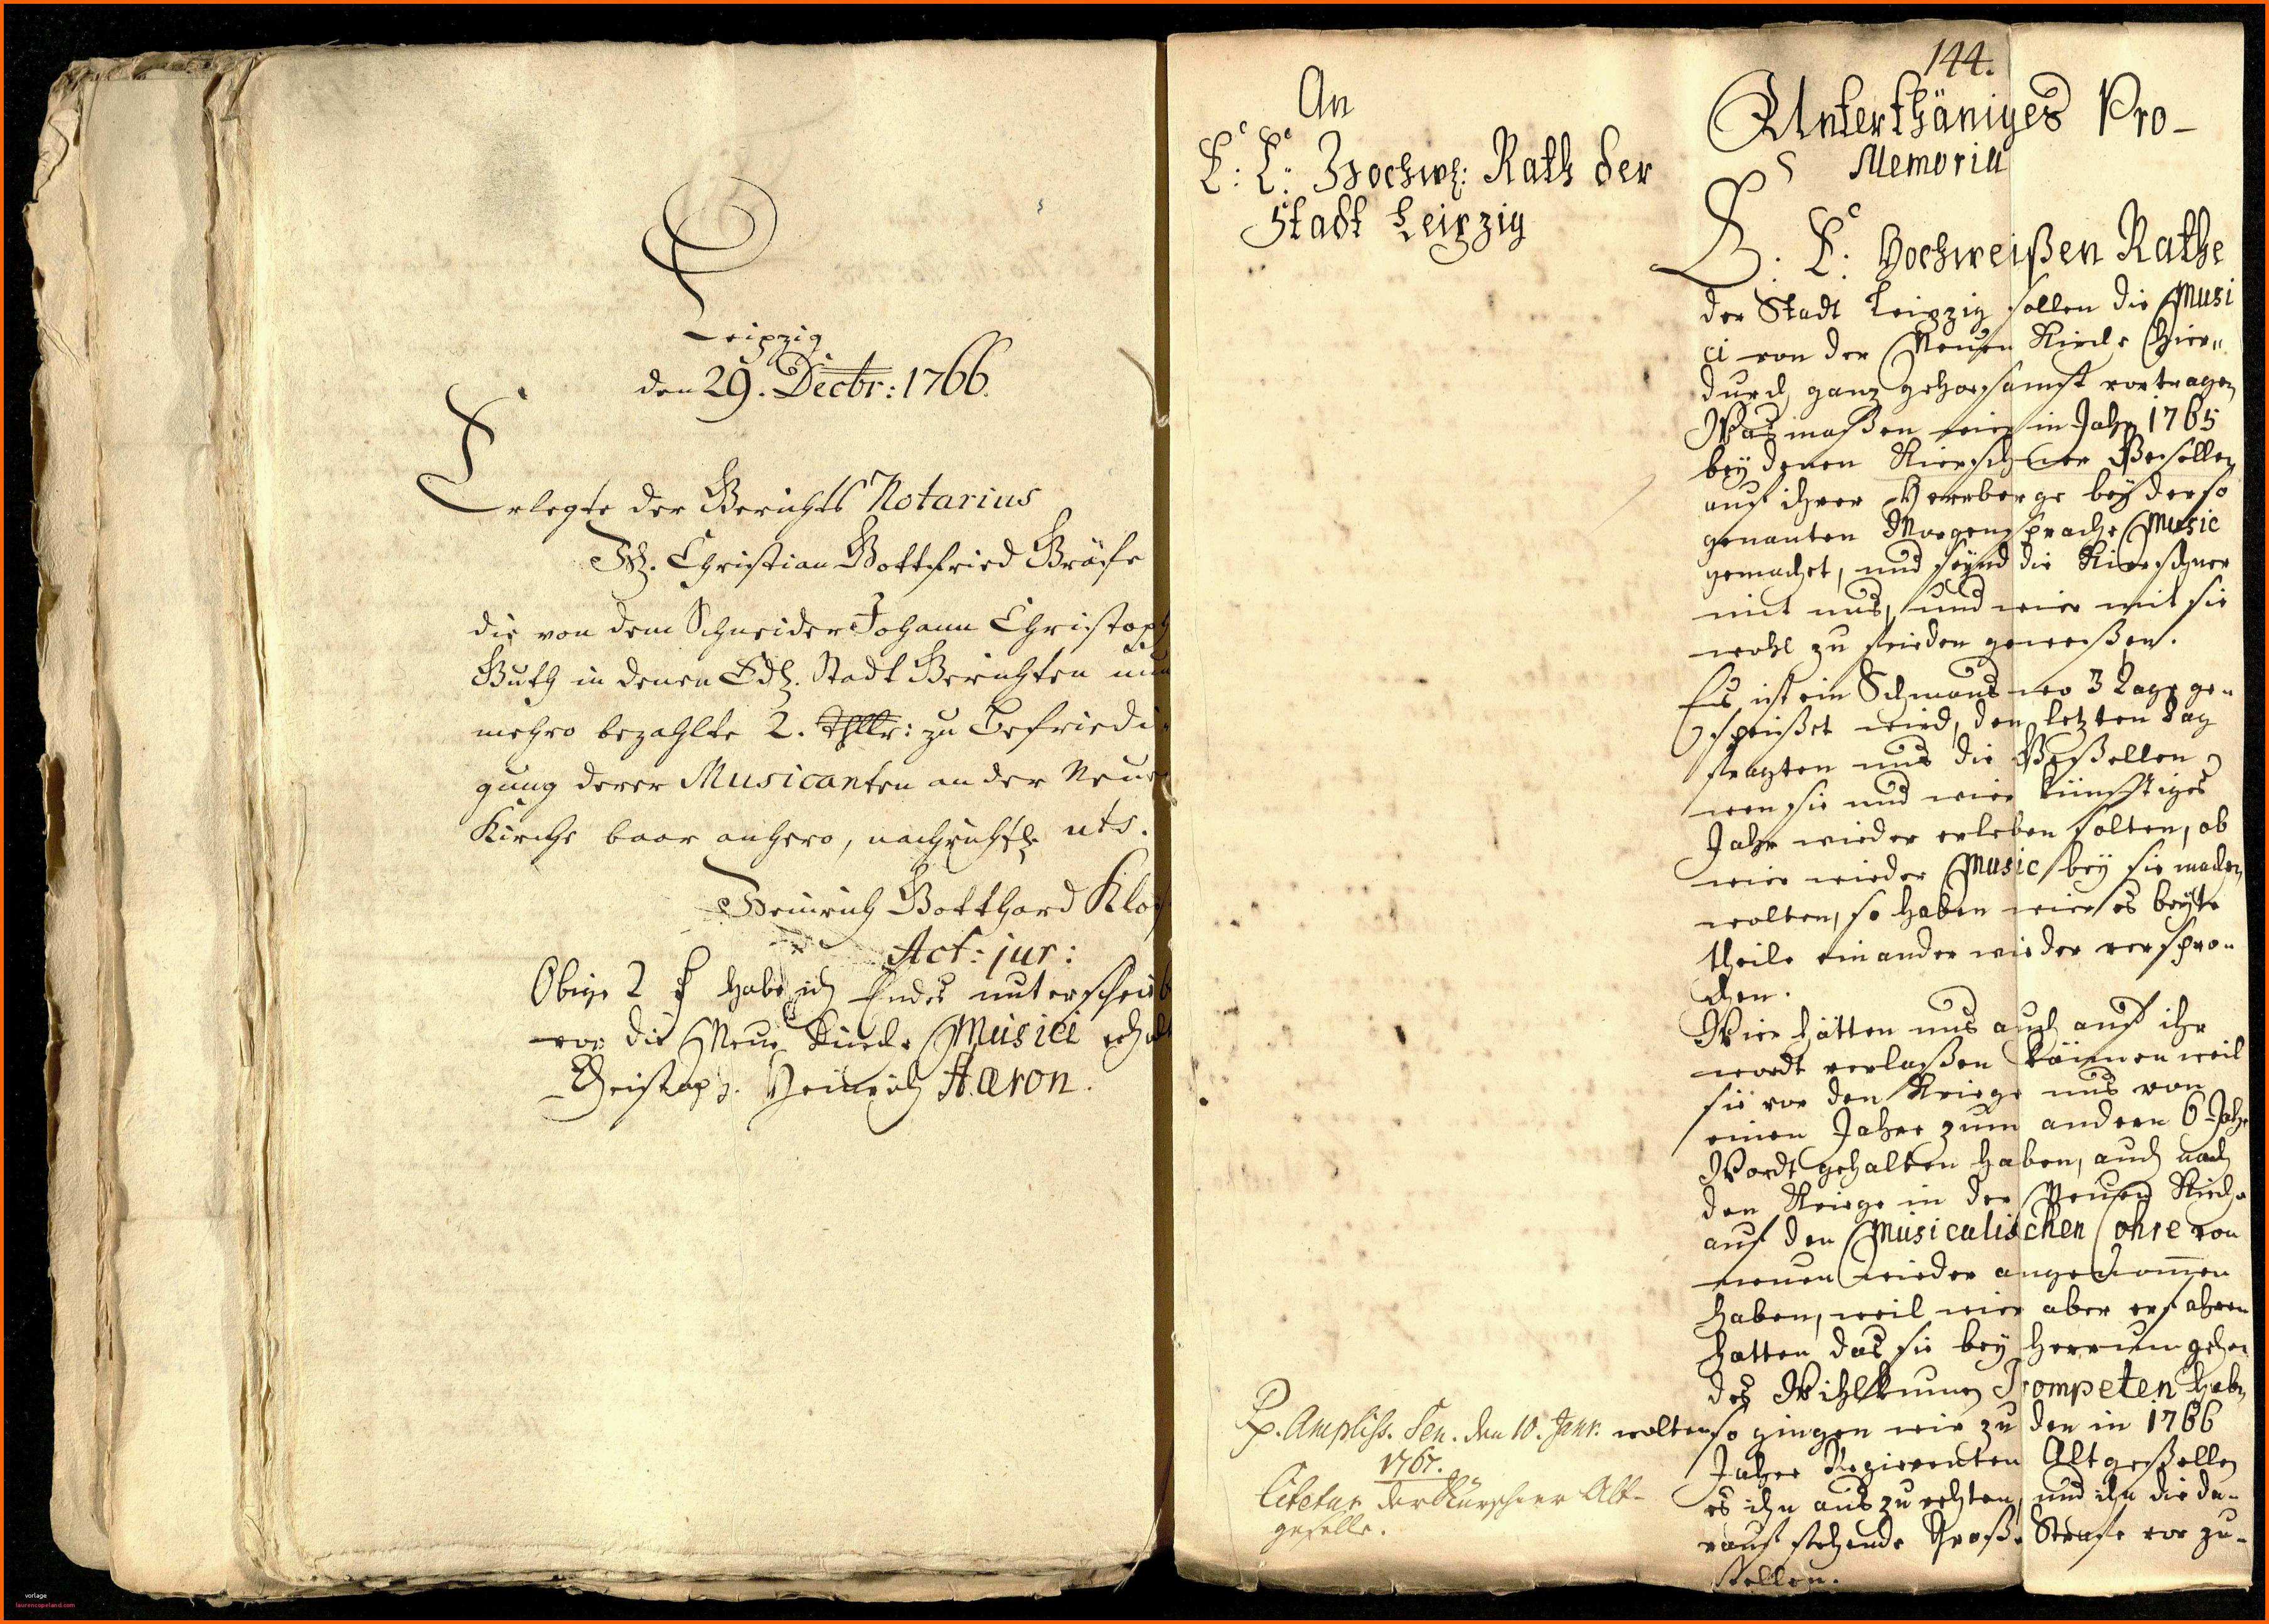 Leipzig
den 29. Dectbr: 1766.
Erlegte der Gerichts Notarius
H. Christian Gottfried Gräfe
die von dem Schneider Johann Christoph
Guth in denen Edl. Stadt Gerichten nun
mehro bezahlte 2. Thlr: zu Befriedi
gung derer Musicanten an der Neuen
Kirche baar anhero, nachrichtl. uts.
Heinrich Gotthard
Act: jur:
Obige 2 habe ich Endes unterschrieb
vor die Neue Kirche Musici
Christoph Heinrich
144.
An
E: E: Hochw: Rath der
Stadt Leipzig
Unterthäniges Pro-
Memoria
E: E: Hochweißen Rathe
der Stadt Leipzig sollen die Musi
ci von der Neuen Kirche hier
durch ganz gehorsamst vortragen
Was maßen wier in Jahr 1765
bey denen Kierschner Gesellen
auf ihrer Herrberge bey der so
genanten Morgensprache Music
gemachet, und seynd die Kierschner
mit uns, und wier mit sie
wohl zu frieden geweßen.
Es ist ein Schmaus wo 3 Tage ge
speißet wird, den letzten Tag
fragten uns die Geßellen
wen sie und wier künfftiges
Jahr wieder erleben solten, ob
wier wieder Music bey sie machen
wolten, so haben wier es beyde
theile einander wieder verspro
chen.
Wier hätten uns auch auf ihr
wordt verlaßen können weil
sie vor den Kriege uns von
einen Jahre zum andern 6 Jahr
Wordt gehalten haben, auch nach
den Kriege in der Neuen Kirche
auf den Musicalischen Chore von
neuen wieder angenommen
haben, weil wier aber erfahren
hatten das sie bey Herrum gehen
des Wihlkumen Trompeten haben
wolten so gingen wir zu den in 1766
Jahre Regierenten Altgeßellen
es ihn aus zu rehten, und ihn die da-
rauf stehende Große Strafe vor zu-
stellen.
Pp. Ampliss. Sen. den 10. Janr.
1767.
Citetur der Kürschner Alt-
geselle.
vorlage
laurencopeland.com